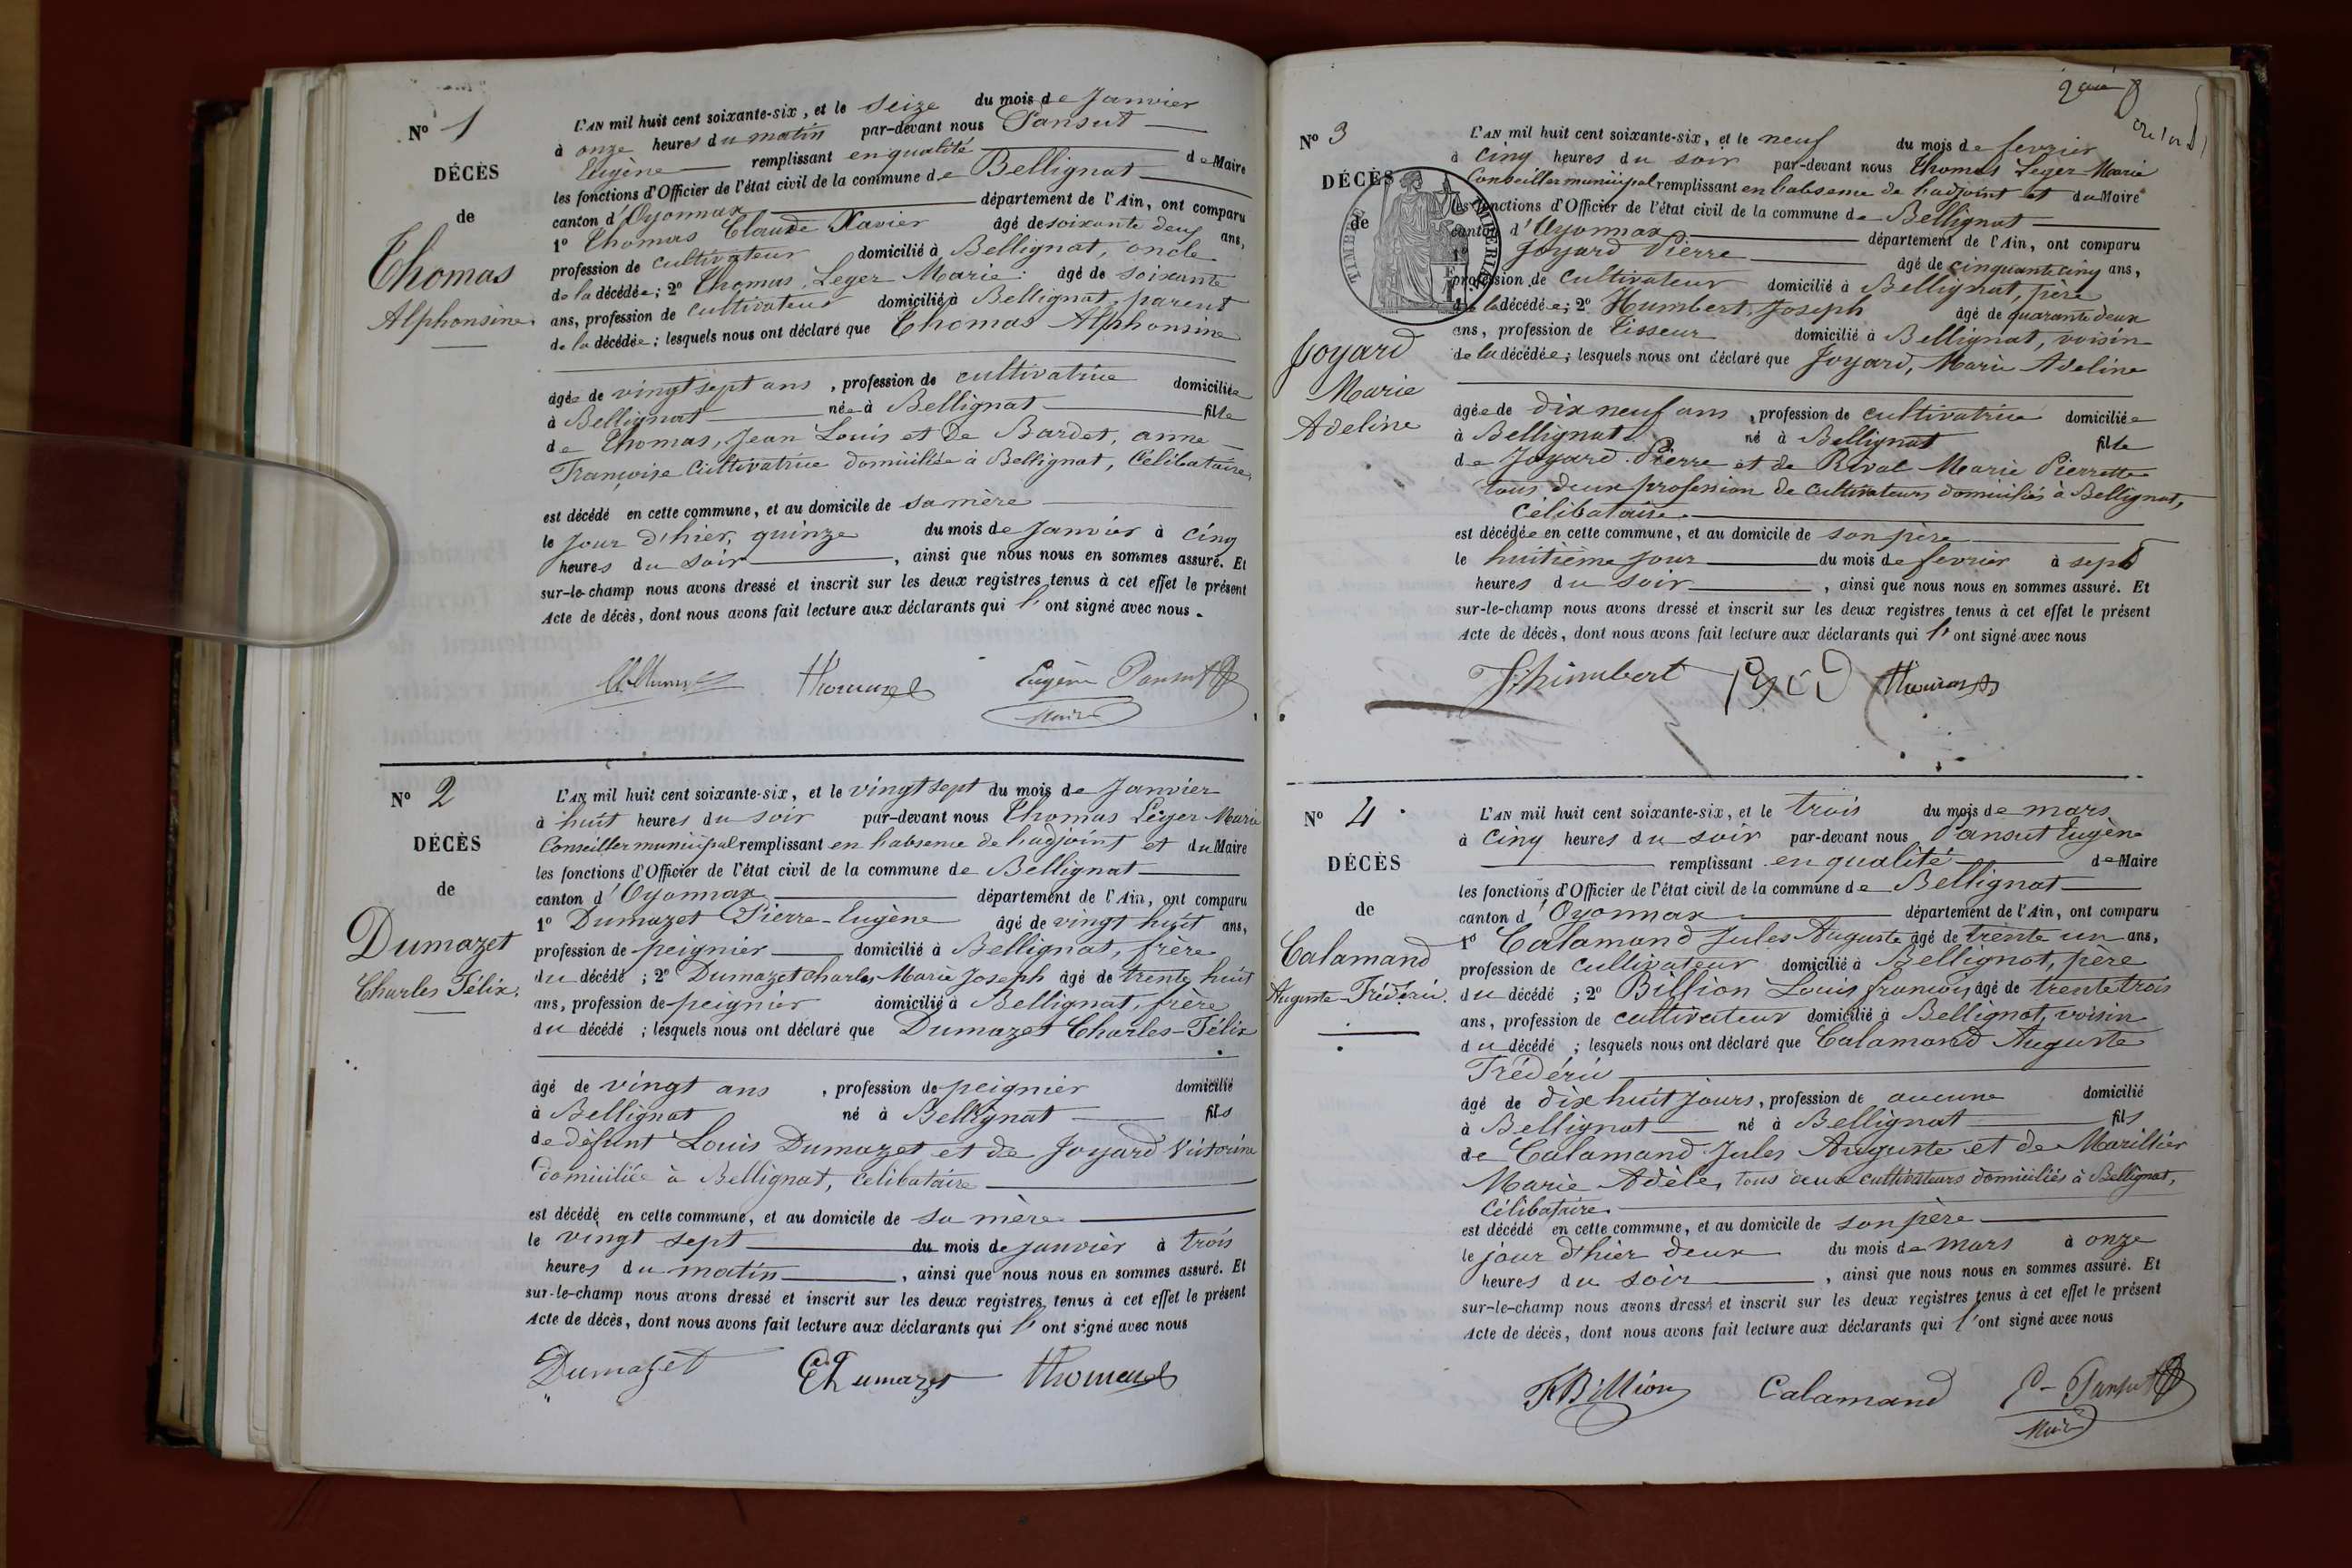 Nº 1
DÉCÈS
de
Thomas
Alphonsine.
L'AN mil huit cent soixante-six, et le seize du mois de Janvier
à onze heures du matin par-devant nous Pansut
Eugène remplissant en qualité de Maire
les fonctions d'Officier de l'état civil de la commune de Bellignat
canton d'Oyonnax département de l'Ain, ont comparu
1º Thomas Claude Xavier âgé de soixante deux ans,
profession de cultivateur domicilié à Bellignat, oncle
de la décédée; 2º Thomas, Leger Marie âgé de soixante
ans, profession de cultivateur domicilié à Bellignat, parent
de la décédée; lesquels nous ont déclaré que Thomas Alphonsine
âgée de vingt sept ans, profession de cultivatrice domiciliée
à Bellignat née à Bellignat fille
de Thomas, Jean Louis et De Bardet, anne
Françoise Cultivatrice domiciliée à Bellignat, Célibataire,
est décédé en cette commune, et au domicile de sa mère
le jour d'hier, quinze du mois de Janvier à cinq
heures du soir, ainsi que nous nous en sommes assuré. Et
sur-le-champ nous avons dressé et inscrit sur les deux registres tenus à cet effet le présent
Acte de décès, dont nous avons fait lecture aux déclarants qui l'ont signé avec nous.
Thomas Eugène Pansut
Maire
Nº 2
DÉCÈS
de
Dumazet
Charles Félix.
L'AN mil huit cent soixante-six, et le vingt sept du mois de Janvier
à huit heures du soir par-devant nous Thomas Léger Marie
Conseiller municipal remplissant en l'absence de l'adjoint et du Maire
les fonctions d'Officier de l'état civil de la commune de Bellignat
canton d'Oyonnax département de l'Ain, ont comparu
1º Dumazet Pierre-Eugène âgé de vingt huit ans,
profession de peignier domicilié à Bellignat, frère
du décédé; 2º Dumazet Charles Marie Joseph âgé de trente huit
ans, profession de peignier domicilié à Bellignat, frère
du décédé; lesquels nous ont déclaré que Dumazet Charles-Félix
âgé de vingt ans, profession de peignier domicilié
à Bellignat né à Bellignat fils
de défunt Louis Dumazet et de Joyard Victorine
domiciliée à Bellignat, célibataire
est décédé en cette commune, et au domicile de sa mère
le vingt sept du mois de janvier à trois
heures du matin, ainsi que nous nous en sommes assuré. Et
sur-le-champ nous avons dressé et inscrit sur les deux registres tenus à cet effet le présent
Acte de décès, dont nous avons fait lecture aux déclarants qui l'ont signé avec nous
Dumazet Dumazet Thomas
Nº 3
DÉCÈS
de
TIMBRE IMPÉRIAL
Joyard
Marie
Adeline
L'AN mil huit cent soixante-six, et le neuf du mois de fevrier
à cinq heures du soir par-devant nous Thomas Leger Marie
Conseiller municipal remplissant en l'absence de l'adjoint et du Maire
les fonctions d'Officier de l'état civil de la commune de Bellignat
canton d'Oyonnax département de l'Ain, ont comparu
1º Joyard Pierre âgé de cinquante cinq ans,
profession de Cultivateur domicilié à Bellignat, père
de la décédée; 2º Humbert Joseph âgé de quarante deux
ans, profession de Tisseur domicilié à Bellignat, voisin
de la décédée; lesquels nous ont déclaré que Joyard, Marie Adeline
âgée de dix neuf ans, profession de cultivatrice domiciliée
à Bellignat né à Bellignat fille
de Joyard Pierre et de Rival Marie Pierrette
tous deux profession de Cultivateurs domiciliés à Bellignat,
Célibataire.
est décédée en cette commune, et au domicile de son père
le huitième jour du mois de fevrier à sept
heures du soir, ainsi que nous nous en sommes assuré. Et
sur-le-champ nous avons dressé et inscrit sur les deux registres tenus à cet effet le présent
Acte de décès, dont nous avons fait lecture aux déclarants qui l'ont signé avec nous
J. humbert Thomas
Nº 4
DÉCÈS
de
Calamand
Auguste Frédéric.
L'AN mil huit cent soixante-six, et le trois du mois de mars
à cinq heures du soir par-devant nous Pansut Eugène
remplissant en qualité de Maire
les fonctions d'Officier de l'état civil de la commune de Bellignat
canton d'Oyonnax département de l'Ain, ont comparu
1º Calamand Jules Auguste âgé de trente un ans,
profession de cultivateur domicilié à Bellignat, père
du décédé; 2º Billion Louis françois âgé de trente trois
ans, profession de cultivateur domicilié à Bellignat, voisin
du décédé; lesquels nous ont déclaré que Calamand Auguste
Frédéric
âgé de dix huit jours, profession de aucune domicilié
à Bellignat né à Bellignat fils
de Calamand Jules Auguste et de Marillier
Marie Adèle, tous deux cultivateurs domiciliés à Bellignat,
Célibataire.
est décédé en cette commune, et au domicile de son père
le jour d'hier deux du mois de mars à onze
heures du soir, ainsi que nous nous en sommes assuré. Et
sur-le-champ nous avons dressé et inscrit sur les deux registres tenus à cet effet le présent
Acte de décès, dont nous avons fait lecture aux déclarants qui l'ont signé avec nous
F Billion Calamand E. Pansut
Maire